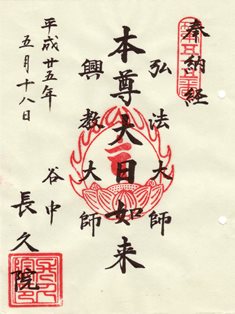 奉納経
弘法大師
本尊大日如来
興教大師
平成廿五年
五月十八日
谷中
長久院